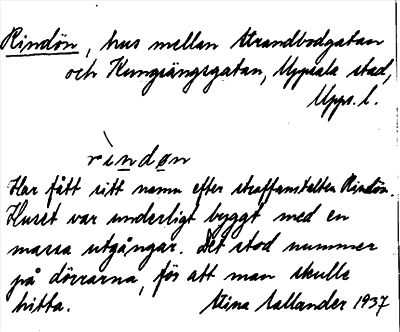 Rindön, hus mellan Strandbodgatan
och Kungsängsgatan, Uppsala stad,
Upps. l.
rìndøn
Har fått sitt namn efter straffanstalten Rindön.
Huset var underligt byggt med en
massa utgångar. Det stod nummer
på dörrarna, för att man skulle
hitta.
Stina Sallander 1937